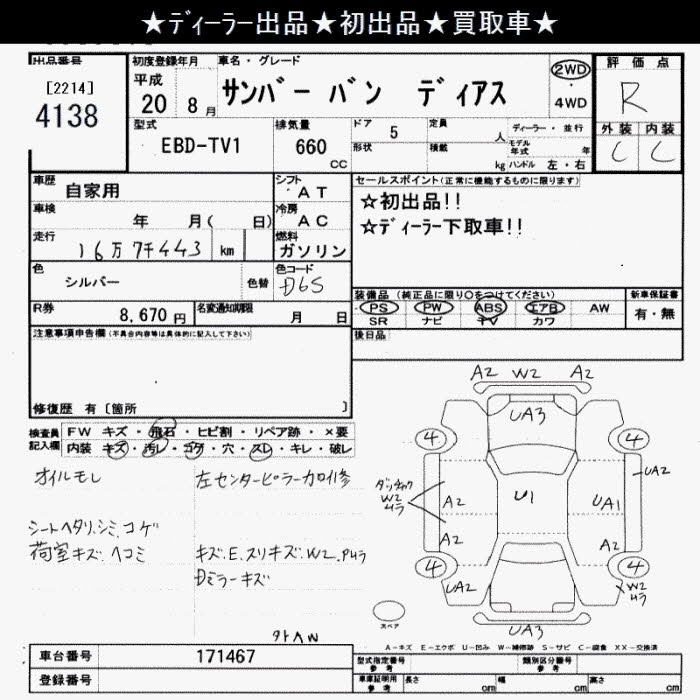 ★ディーラー出品★初出品★買取車★
出品番号
[2214]
4138
初度登録年月
平成
20 8月
車名・グレード
サンバー バン ディアス
2WD
・
4WD
評価点
R
外装 内装
C C
型式
EBD-TV1
排気量
660
CC
ドア 5
形状
定員 人
積載 kg
ディーラー・並行
モデル年式 年
ハンドル 左・右
車歴
自家用
シフト
AT
車検
年 月( 日)
冷房
AC
走行
16万7千443 km
燃料
ガソリン
色
シルバー
色替
色コード
D6S
R券
8,670円
名変通知期限
月 日
セールスポイント(正常に機能するものに限ります)
☆初出品!!
☆ディーラー下取車!!
装備品 (純正品に限り○をつけてください)
PS PW ABS エアB AW
SR ナビ TV カワ
新車保証書
有・無
後日品
注意事項申告欄(不具合内容等は具体的に記入して下さい)
修復歴 有〔箇所 〕
検査員
記入欄
FW キズ・飛石・ヒビ割・リペア跡・×要
内装 キズ・汚レ・コゲ・穴・スレ・キレ・破レ
オイルモレ
左センターピラー加工修
シートヘタリ.シミ.コゲ
荷室キズ.ヘコミ
キズ.E.スリキズ.W2.Pムラ
Dミラーキズ
A2 W2 A2
UA3
4 4
W2
ムラ
A2
A2
U1
UA2
UA1
A2
4 4
UA2
W2
ムラ
UA3
スペア
A-キズ E-エクボ U-凹み W-補修跡 S-サビ C-腐食 XX-交換済
車台番号
171467
登録番号
型式指定番号
参考
類別区分番号
参考
車庫証明用
参考
長さ cm 幅 cm 高さ cm